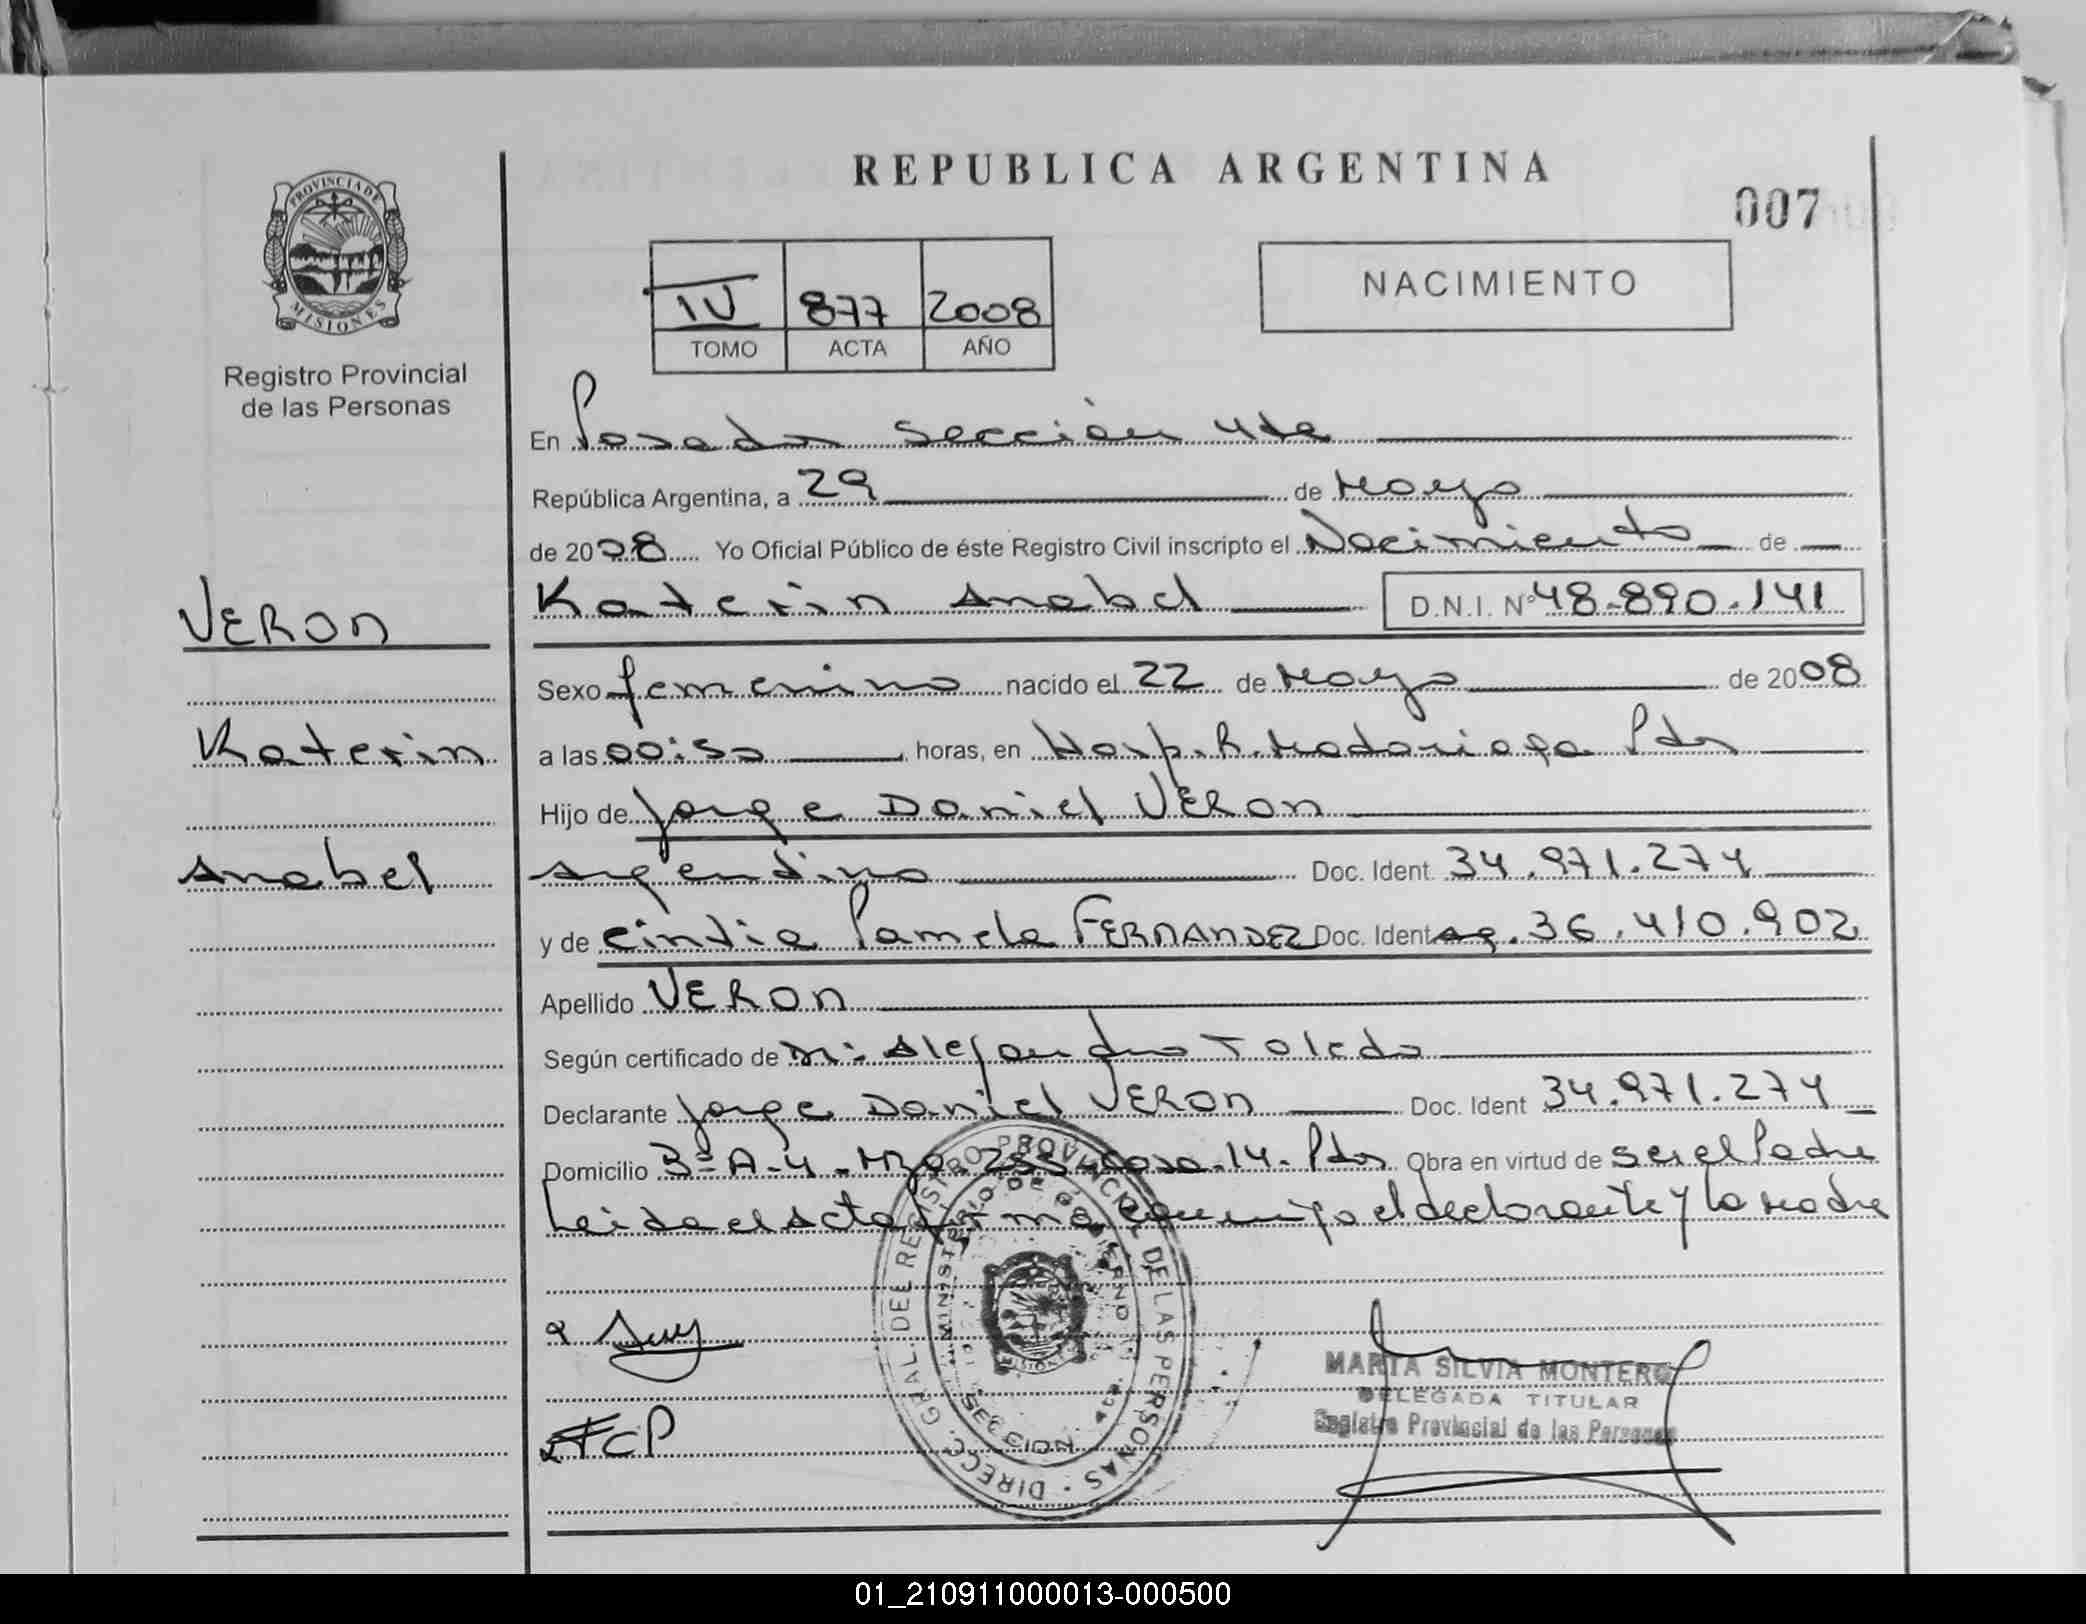 REPUBLICA ARGENTINA
007
PROVINCIA DE MISIONES
Registro Provincial
de las Personas
IV 877 2008
TOMO ACTA AÑO
NACIMIENTO
En Posadas Sección 4ta
República Argentina, a 29 de Mayo
de 2008 Yo Oficial Público de éste Registro Civil inscripto el Nacimiento de
VERON
Katerin Anabel D.N.I. Nº 48.890.141
Sexo femenino nacido el 22 de Mayo de 2008
Katerin
a las 00:50 horas, en Hosp. R. Madariaga Pdas
Hijo de Jorge Daniel VERON
Anabel
Argentino Doc. Ident. 34.971.274
y de Cintia Pamela FERNANDEZ Doc. Ident. Ag. 36.410.902
Apellido VERON
Según certificado de Dr. Alejandro Toledo
Declarante Jorge Daniel VERON Doc. Ident 34.971.274
Domicilio Mzo 255 Casa 14. Pdas Obra en virtud de ser el Padre
Leida el Acta firma conmigo el declarante y la Madre
DIRECC. GRAL. DEL REGISTRO PROVINCIAL DE LAS PERSONAS
MINISTERIO DE GOBIERNO
SECCION 4ta.
MARTA SILVIA MONTERO
DELEGADA TITULAR
Registro Provincial de las Personas
FCP
01_210911000013-000500